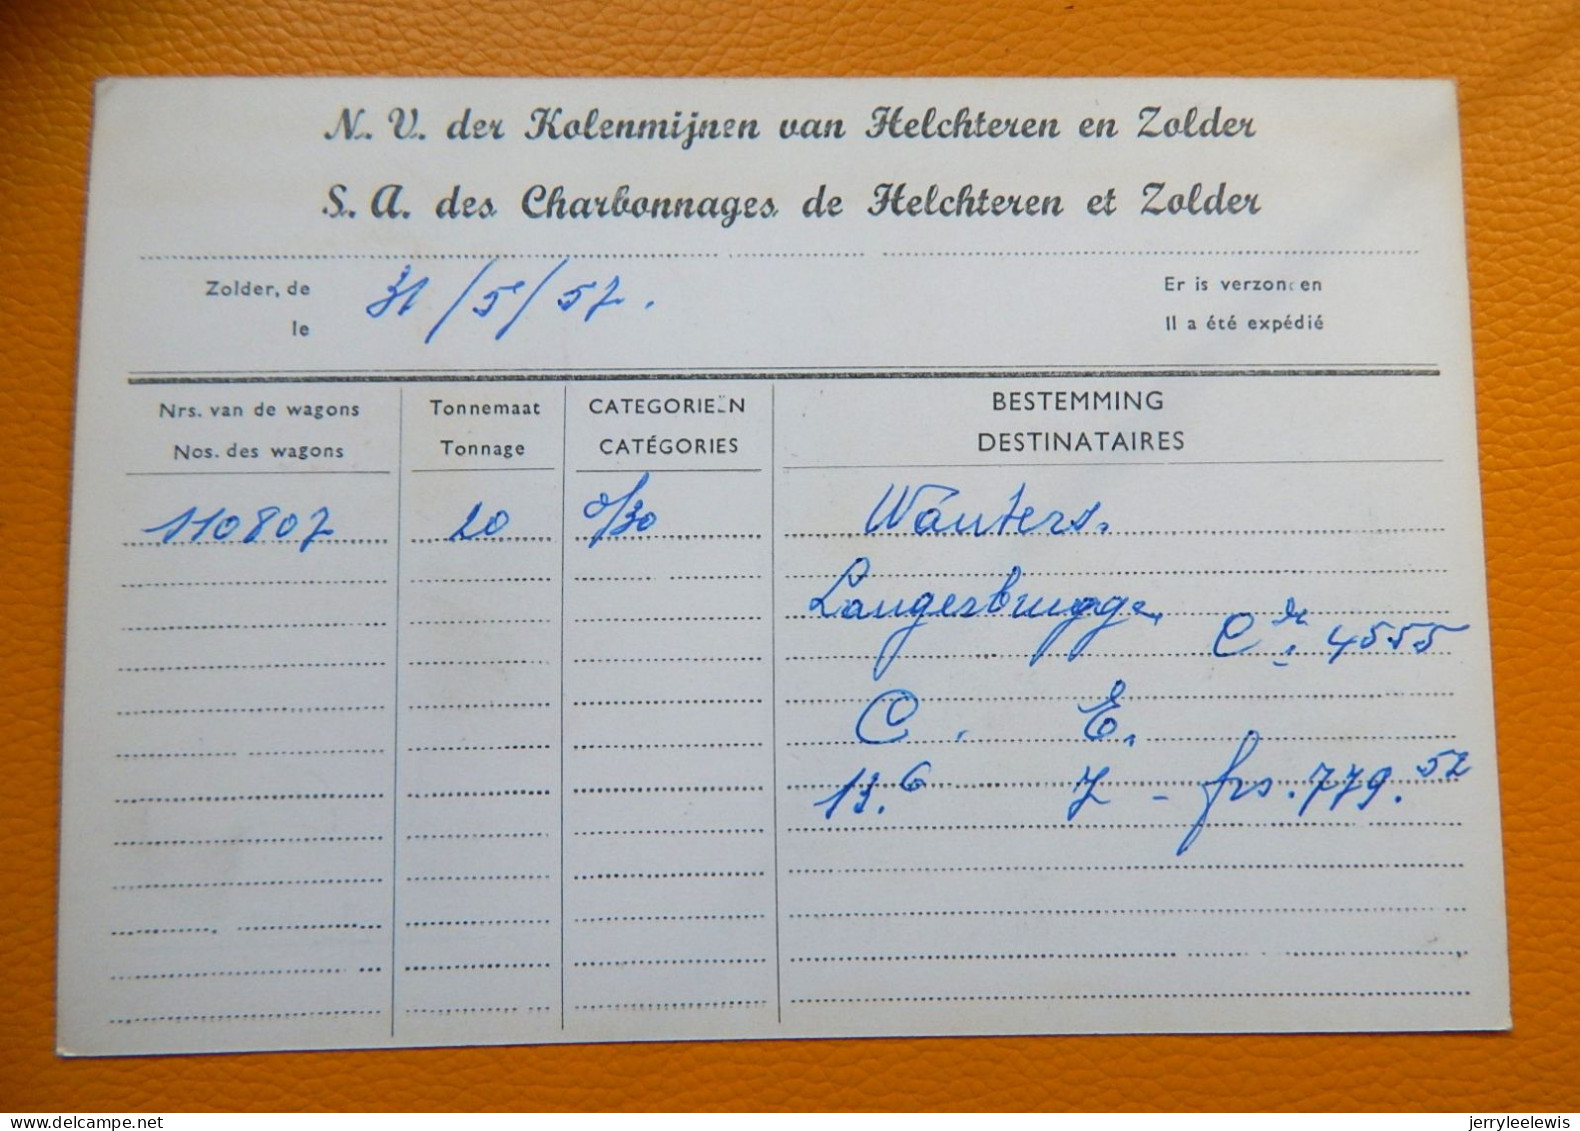 N. V. der Kolenmijnen van Helchteren en Zolder
S. A. des Charbonnages de Helchteren et Zolder
Zolder, de 31/5/57.
le
Er is verzonden
Il a été expédié
Nrs. van de wagons
Nos. des wagons
Tonnemaat
Tonnage
CATEGORIEËN
CATÉGORIES
BESTEMMING
DESTINATAIRES
110807 20 0/30 Wauters.
Langerbrugge
Cde. 4555
C. E.
13.6 7 - frs. 779.52
jerryleelewis